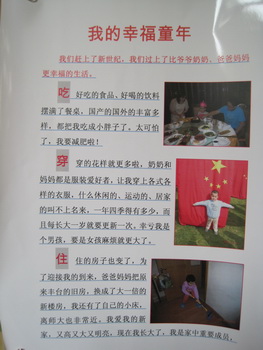 我的幸福童年
我们赶上了新世纪，我们过上了比爷爷奶奶、爸爸妈妈
更幸福的生活。
吃 好吃的食品、好喝的饮料
摆满了餐桌，国产的国外的丰富多
样，都把我吃成小胖子了，太可怕
了，我要减肥啦！
穿 穿的花样就更多啦，奶奶和
妈妈都是服装爱好者，让我穿上各式各
样的衣服，什么休闲的、运动的、居家
的叫不上名来，一年四季得有多少，而
且每长大一岁就要更新一次，幸亏我是
个男孩，要是女孩麻烦就更大了。
住 住的房子也变了，为
了迎接我的到来，爸爸妈妈把原
来丰台的旧房，换成了大一倍的
新楼房，我还有了自己的小床，
离师大也非常近，我爱我的新
家，又高又大又明亮，现在我长大了，我是家中重要成员，